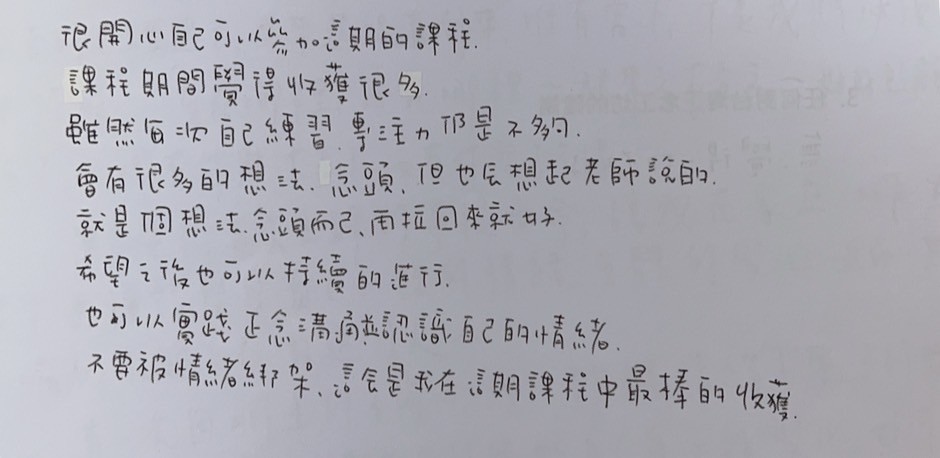 很開心自己可以參加這期的課程.
課程期間覺得收獲很多.
雖然每次自己練習.專注力仍是不夠.
會有很多的想法.念頭、但也会想起老師說的.
就是個想法.念頭而已、再拉回來就好.
希望之後也可以持續的進行.
也可以實踐正念溝通並認識自己的情緒.
不要被情緒綁架、這会是我在這期課程中最棒的收獲.